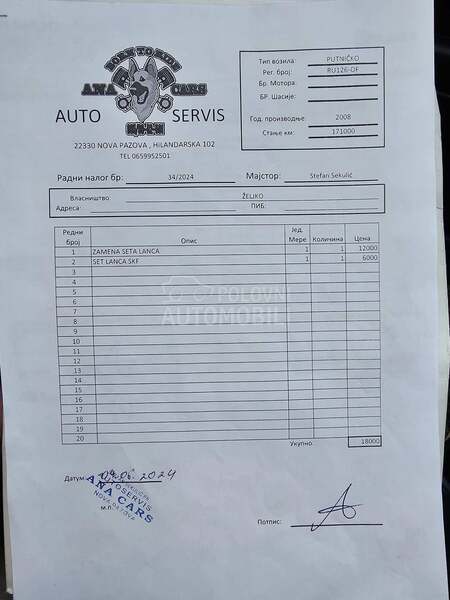 BORN TO RIDE
ANA CARS
AUTO SERVIS
22330 NOVA PAZOVA , HILANDARSKA 102
TEL 0659952501
Тип возила: PUTNIČKO
Рег. број: RU126-DF
Бр. Мотора:
БР. Шасије:
Год. производње: 2008
Стање км: 171000
Радни налог бр: 34/2024 Мајстор: Stefan Sekulić
Власништво: ŽELJKO
Адреса: ПИБ:
Редни број Опис Јед. Мере Количина Цена
1 ZAMENA SETA LANCA 1 1 12000
2 SET LANCA SKF 1 1 6000
3
4
5
6
7
8
9
10
11
12
13
14
15
16
17
18
19
20
Укупно 18000
POLOVNI
AUTOMOBILI
Датум:
2024
AUTOSERVIS
ANA CARS
NOVA PAZOVA
м.п.
Потпис: